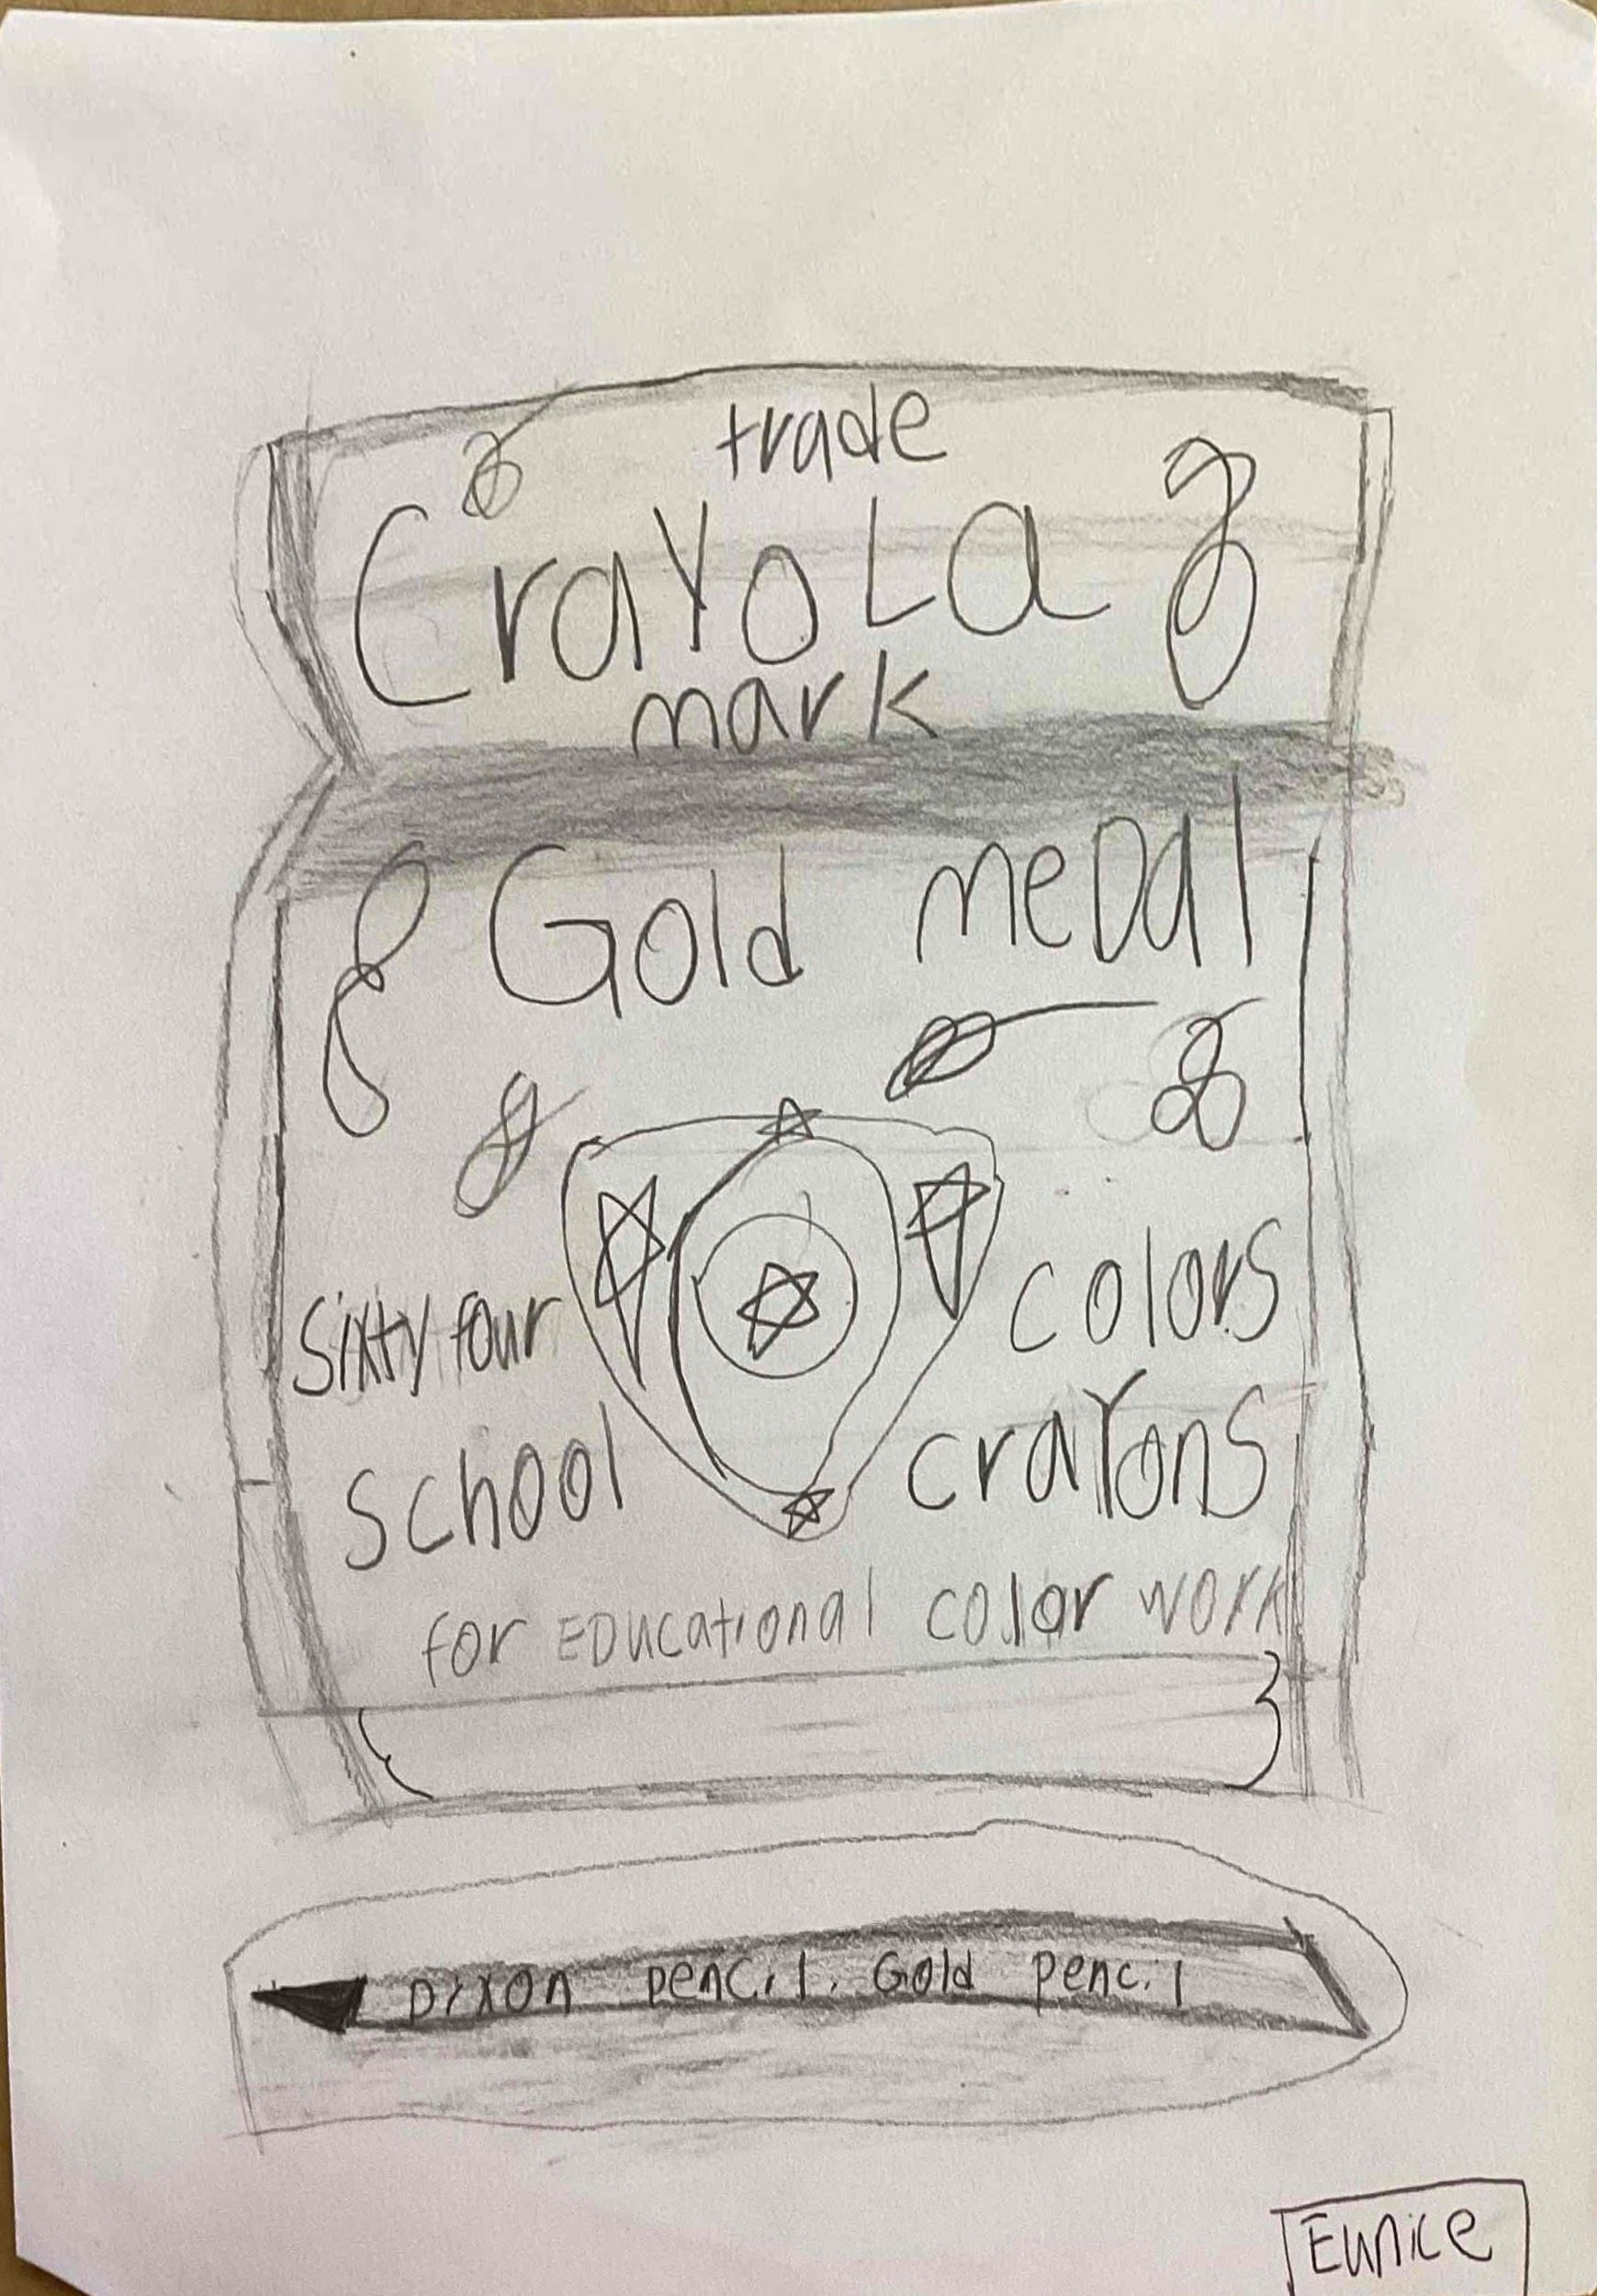 trade
CrayoLa
mark
Gold meDal
Sixty four colors
School crayons
for EDucational color work
Dixon pencil. Gold pencil
Eunice